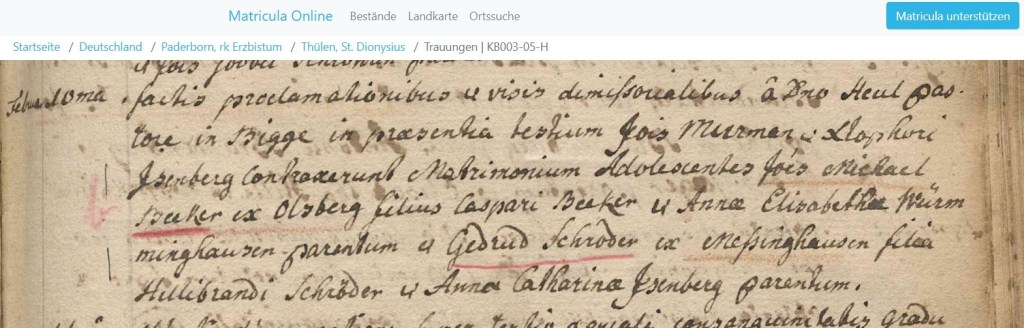 Matricula Online Bestände Landkarte Ortssuche Matricula unterstützen
Startseite / Deutschland / Paderborn, rk Erzbistum / Thülen, St. Dionysius / Trauungen | KB003-05-H
10ma factis proclamationibus et visis dimissorialibus a Dno Heul pas-
tore in Bigge in praesentia testium Jois Murman et Xtophori
Isenberg Contraxerunt Matrimonium Adolescentes Jois Michael
Becker ex Olsberg filius Caspari Becker et Annae Elisabethae Würm
minghausen parentum et Gedrud Schröder ex Messinghausen filia
Hillibrandi Schröder et Anna Catharinae Isenberg parentum.
consanguinitatis gradu